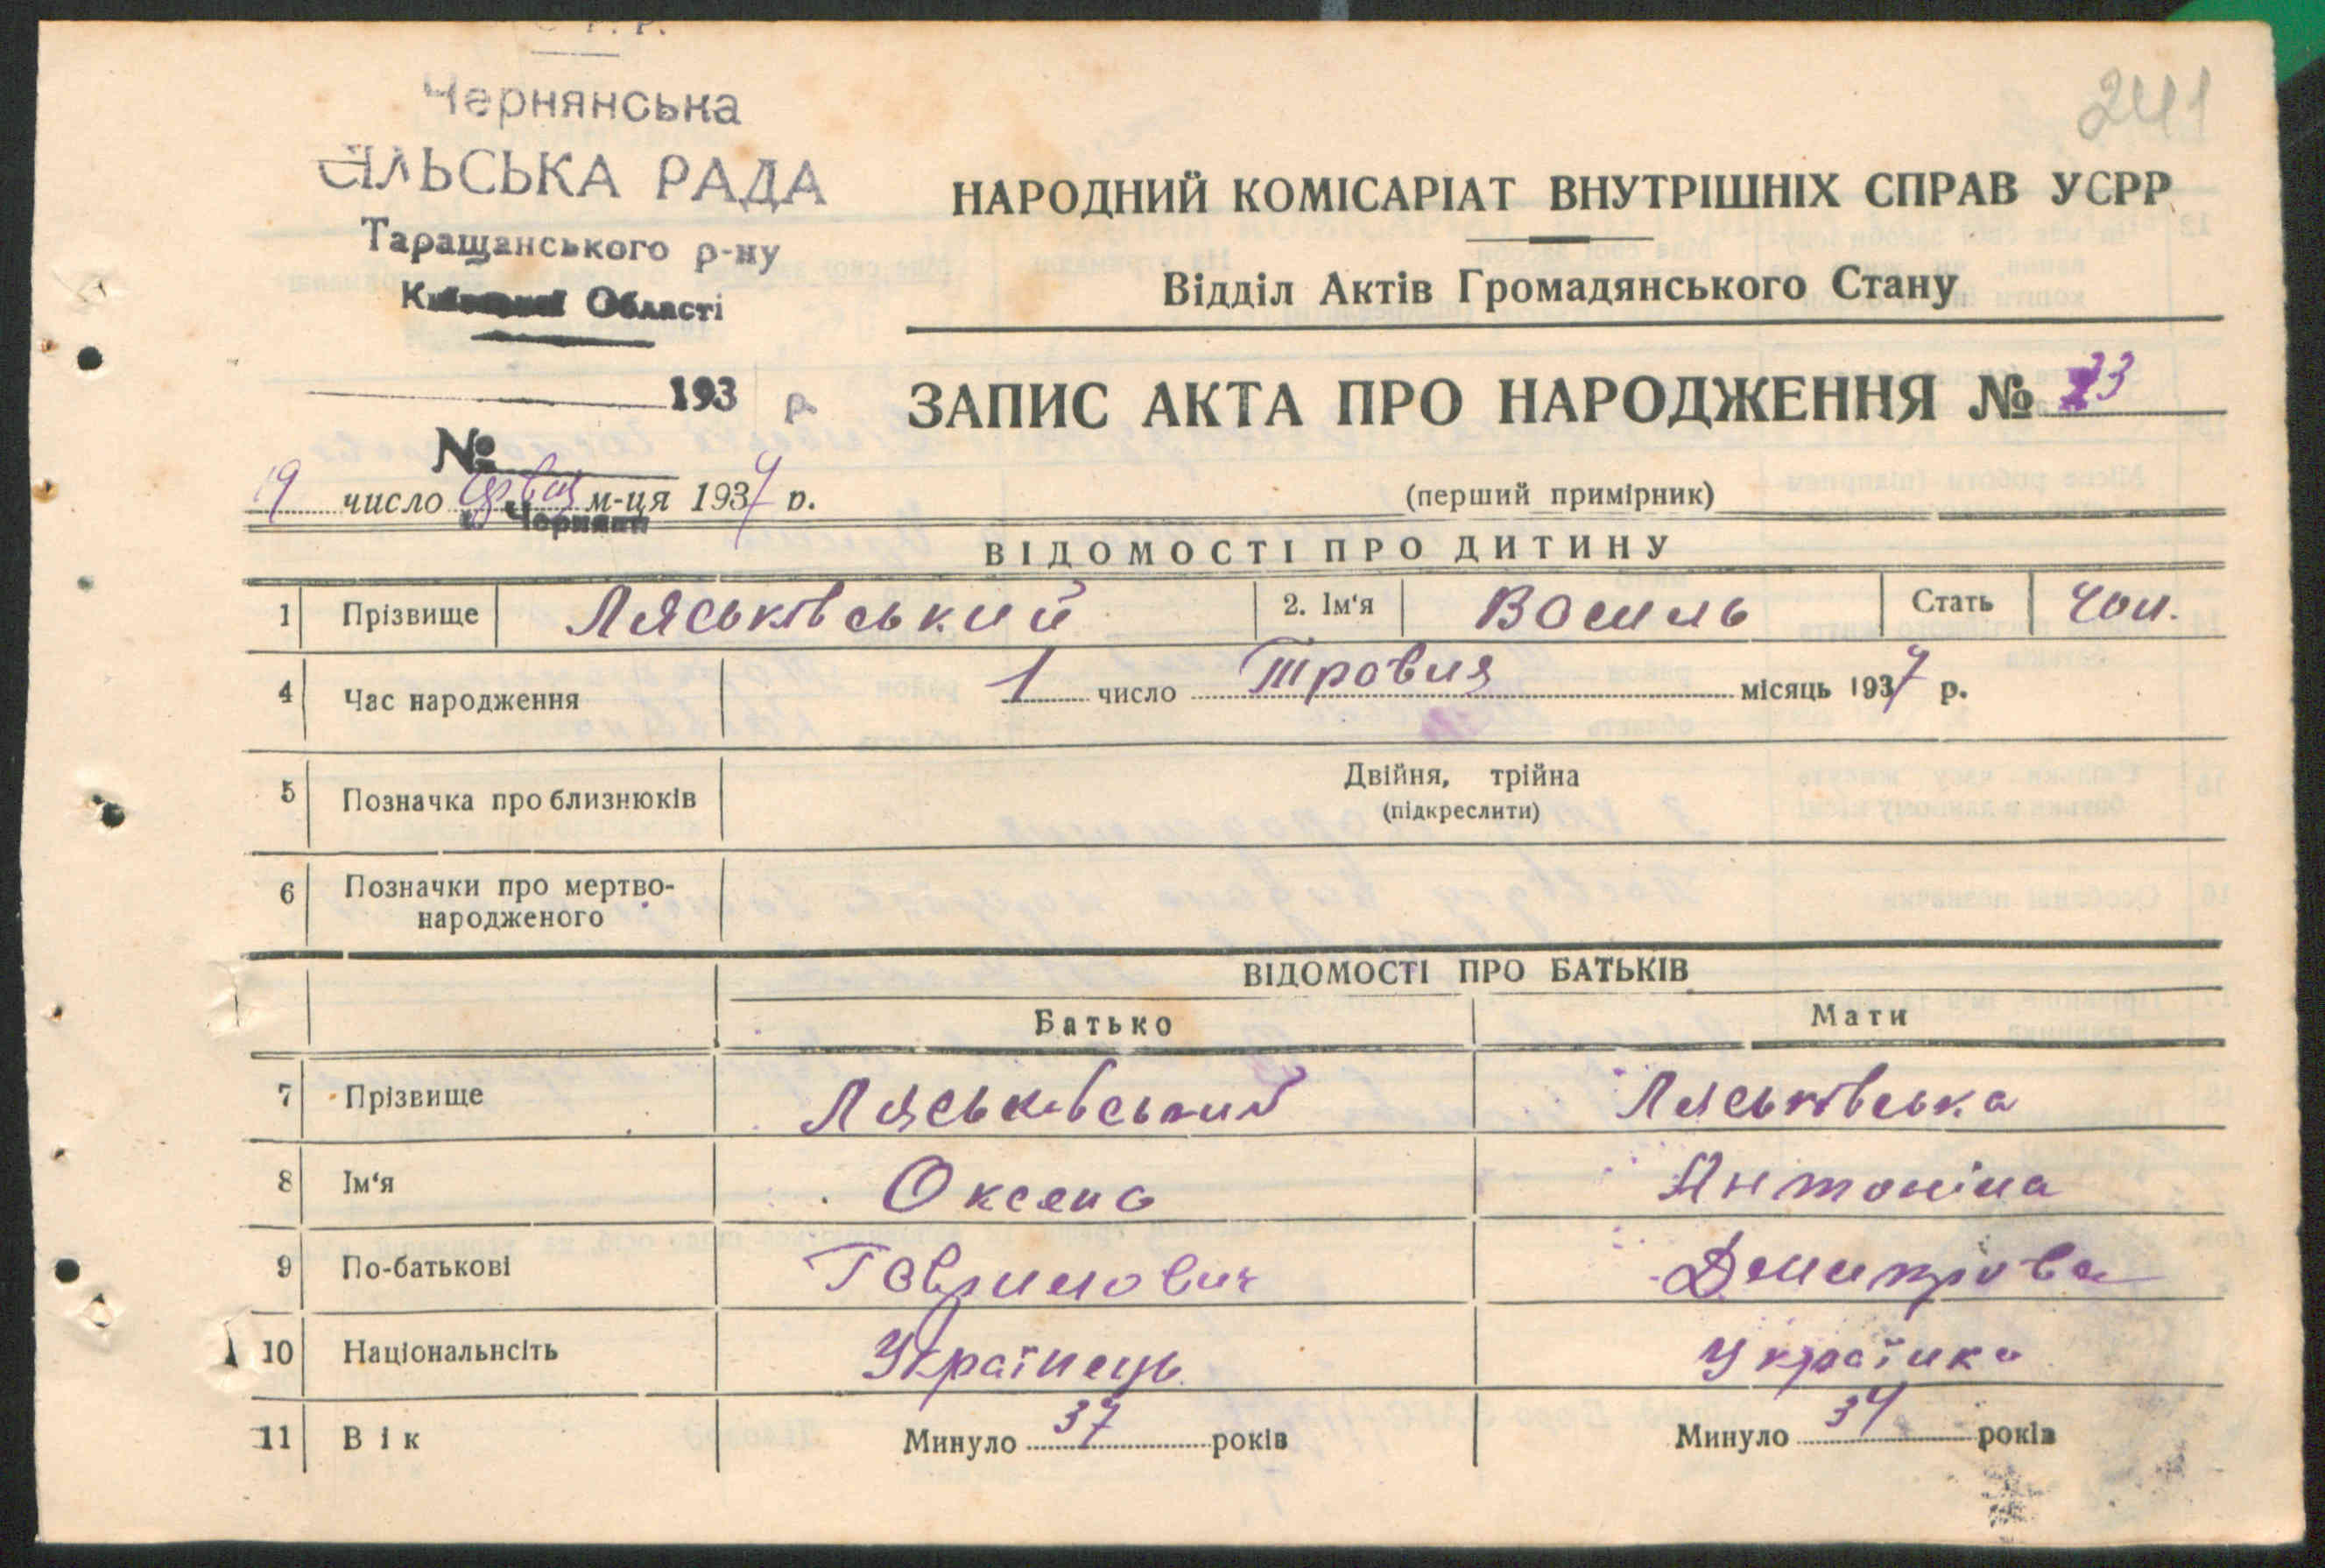 Чернянська
СІЛЬСЬКА РАДА
Таращанського р-ну
Області
193 р.
№
241
НАРОДНИЙ КОМІСАРІАТ ВНУТРІШНІХ СПРАВ УСРР
Відділ Актів Громадянського Стану
ЗАПИС АКТА ПРО НАРОДЖЕННЯ № 23
(перший примірник)
19 число м-ця 1937 р.
ВІДОМОСТІ ПРО ДИТИНУ
1 Прізвище Ляськівський 2. Ім‘я Василь Стать чол.
4 Час народження 1 число Травня місяць 1937 р.
5 Позначка про близнюків Двійня, трійна
(підкреслити)
6 Позначки про мертво-
народженого
ВІДОМОСТІ ПРО БАТЬКІВ
Батько Мати
7 Прізвище Ляськівський Ляськівська
8 Ім‘я Антоніна
9 По-батькові Гаврилович Демитрова
10 Національнсіть Українець Українка
11 Вік Минуло 37 років Минуло 34 років